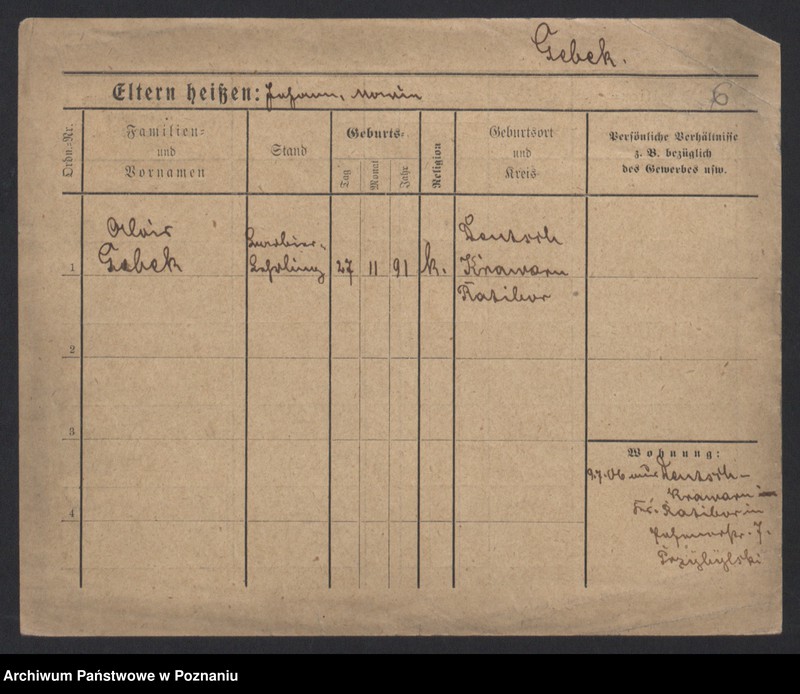 Gebek.
Eltern heißen: Johann, Maria
6
Ordn.-Nr.
Familien-
und
Vornamen
Stand
Geburts-
Tag
Monat
Jahr
Religion
Geburtsort
und
Kreis
Persönliche Verhältnisse
z. B. bezüglich
des Gewerbes usw.
1
Alois
Gebek
Barbier-
Lehrling
27
11
91
k.
Deutsch
Krawarn
Ratibor
2
3
4
Wohnung:
aus Deutsch-
Krawarn
Kr. Ratibor in
7.
Przybylski
Archiwum Państwowe w Poznaniu